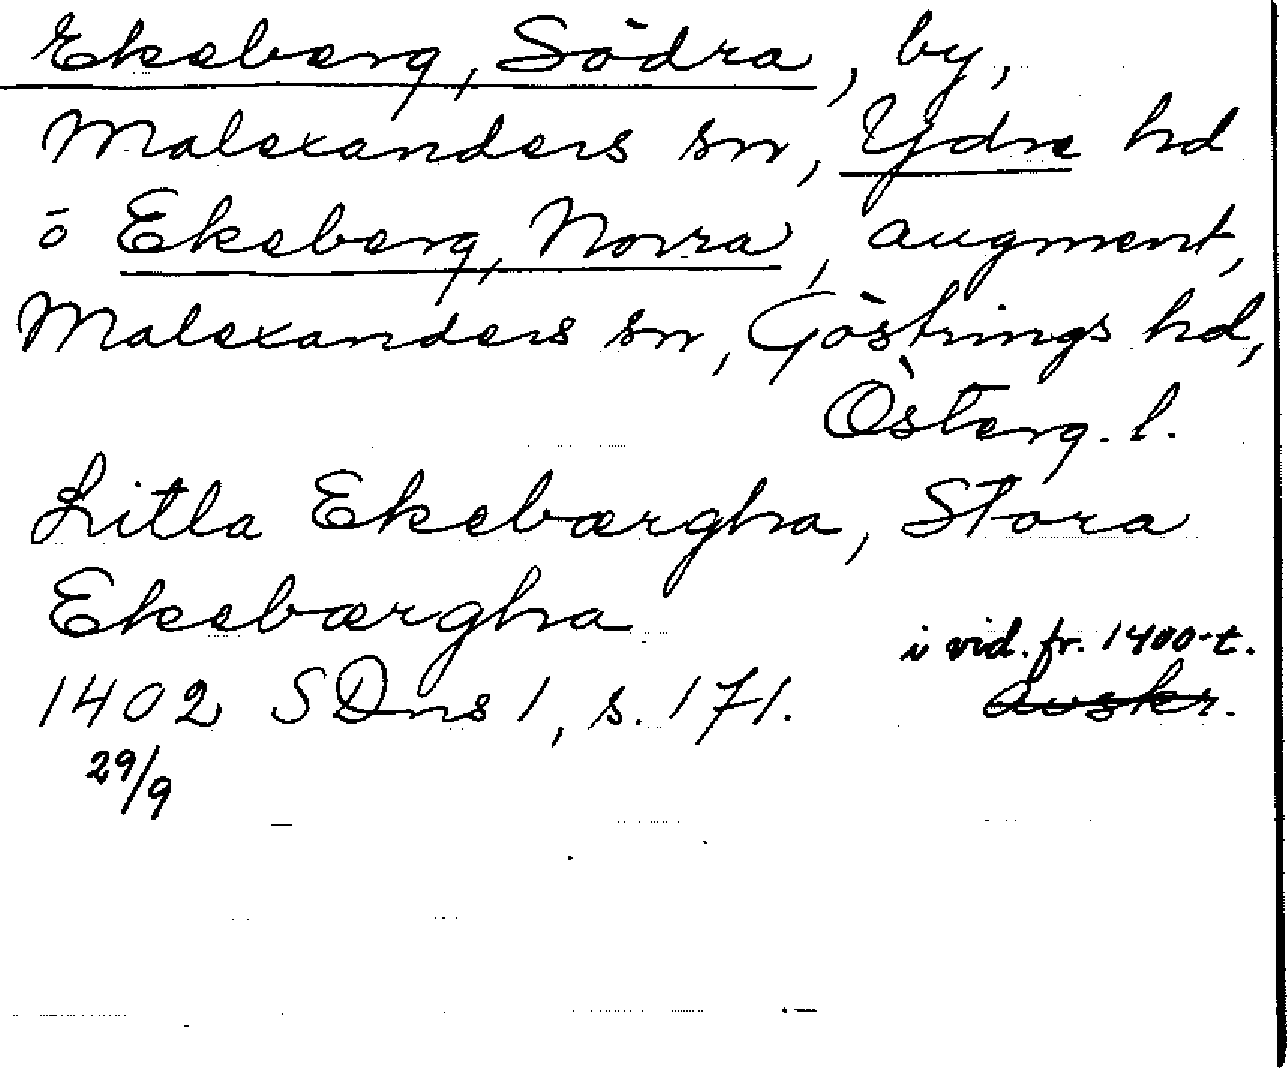 Ekeberg, Södra, by,
Malexanders sn, Ydre hd
o Ekeberg, Norra, augment,
Malexanders sn, Göstrings hd,
Österg. l.
Litla Ekebærgha, Stora
Ekebærgha
i vid. fr. 1400-t.
1402 SDns 1, s. 171. Avskr.
29/9